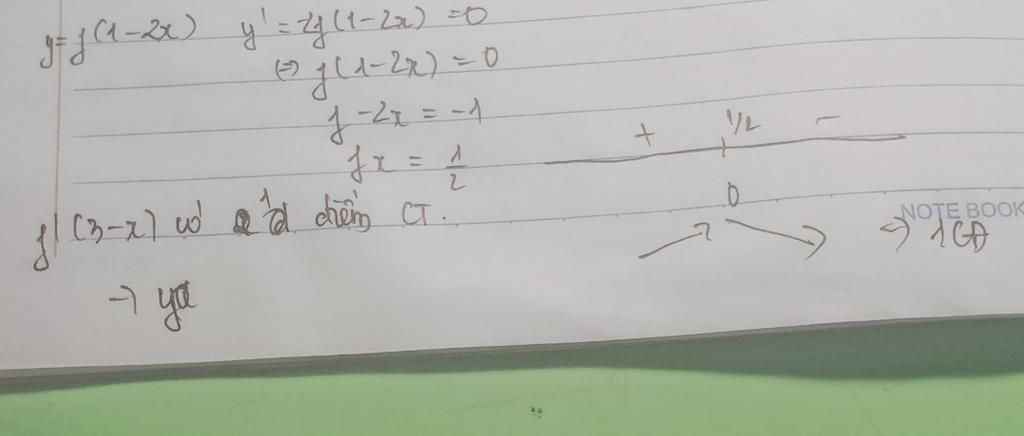 y=f(1-2x) y'=-2f(1-2x)=0
⇔ f(1-2x)=0
f -2x = -1
f x = 1/2
+ 1/2 -
0
f(3-x) có 1 điểm CT.
NOTE BOOK
⇒ 1 CĐ
→ y